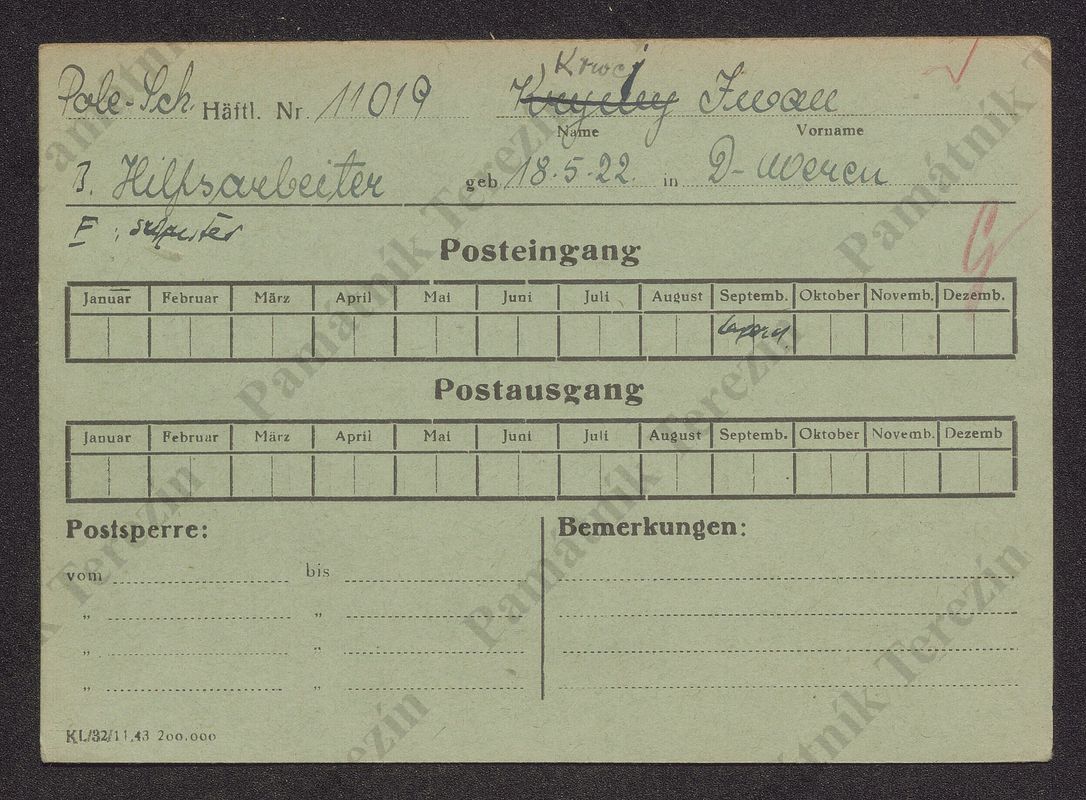 Krwej
Pole-Sch. Häftl. Nr. 11019 Iwan
Name Vorname
B. Hilfsarbeiter geb. 18.5.22. in
Posteingang
Januar Februar März April Mai Juni Juli August Septemb. Oktober Novemb. Dezemb.
Postausgang
Januar Februar März April Mai Juni Juli August Septemb. Oktober Novemb. Dezemb
Postsperre: Bemerkungen:
vom bis
„ „
„ „
„ „
KL/32/11.43 200.000
Památník Terezín